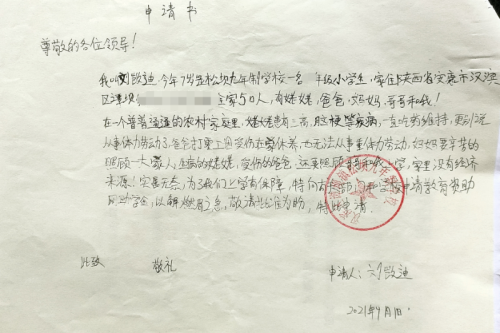 申请书
尊敬的各位领导!
我叫刘改迪今年7岁在松坝九年制学校一名 年级小学生,家住陕西省安康市汉滨
区 全家5口人,有婆婆,爸爸,妈妈,哥哥和我!
在一个普普通通的农村家庭里,婆婆患有三高,脑梗等疾病,一直吃药维持,更别说
从事体力劳动了,爸爸打零工因受伤在家休养,也无法从事重体力劳动,妈妈要辛苦的
照顾一大家人生病的婆婆,受伤的爸爸,还要照顾 上学,家里没有经济
来源!实属无奈,为了我们上学有保障,特向 申请教育资助
助学金,以解燃眉之急,敬请批准为盼,特此申请
此致 敬礼
申请人:刘改迪
2021年9月1日